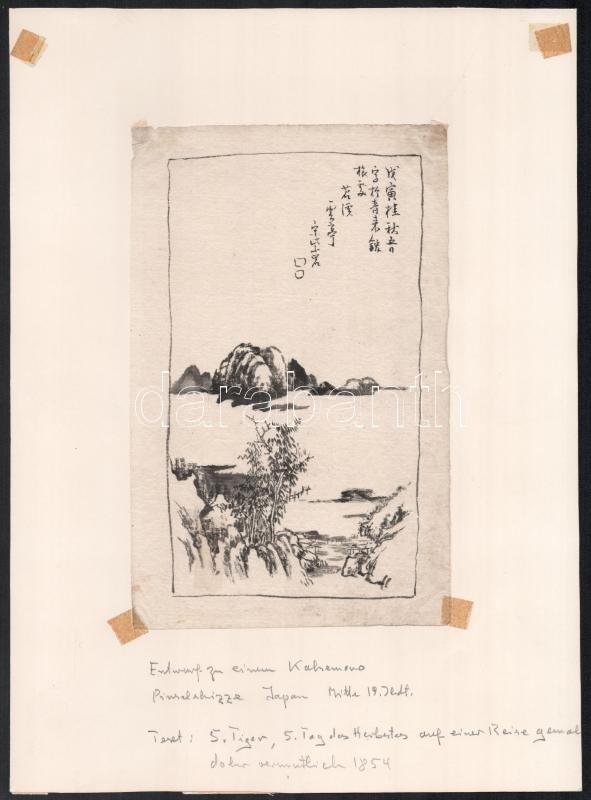 戊寅桂秋五日
写於青来館
旅處
苕溪
雲亭
宋紫岩
darabanth
Entwurf zu einem Kakemono
Pinselskizze Japan Mitte 19. Jhdt.
Text: 5. Tiger, 5. Tag des Herbstes auf einer Reise gemal
daher vermutlich 1854